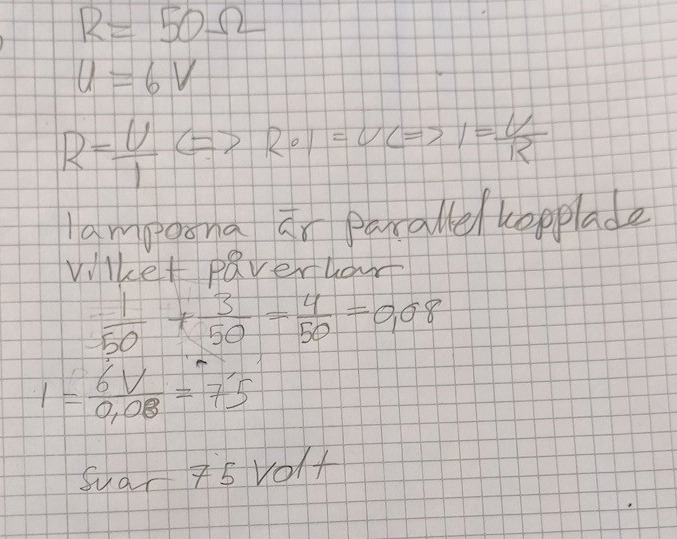 R = 50Ω
U = 6 V
R = U/I <=> R∘I = U <=> I = U/R
lamporna är parallellkopplade
vilket påverkar
1/50 + 3/50 = 4/50 = 0,08
I = 6 V/0,08 = 75
Svar 75 volt